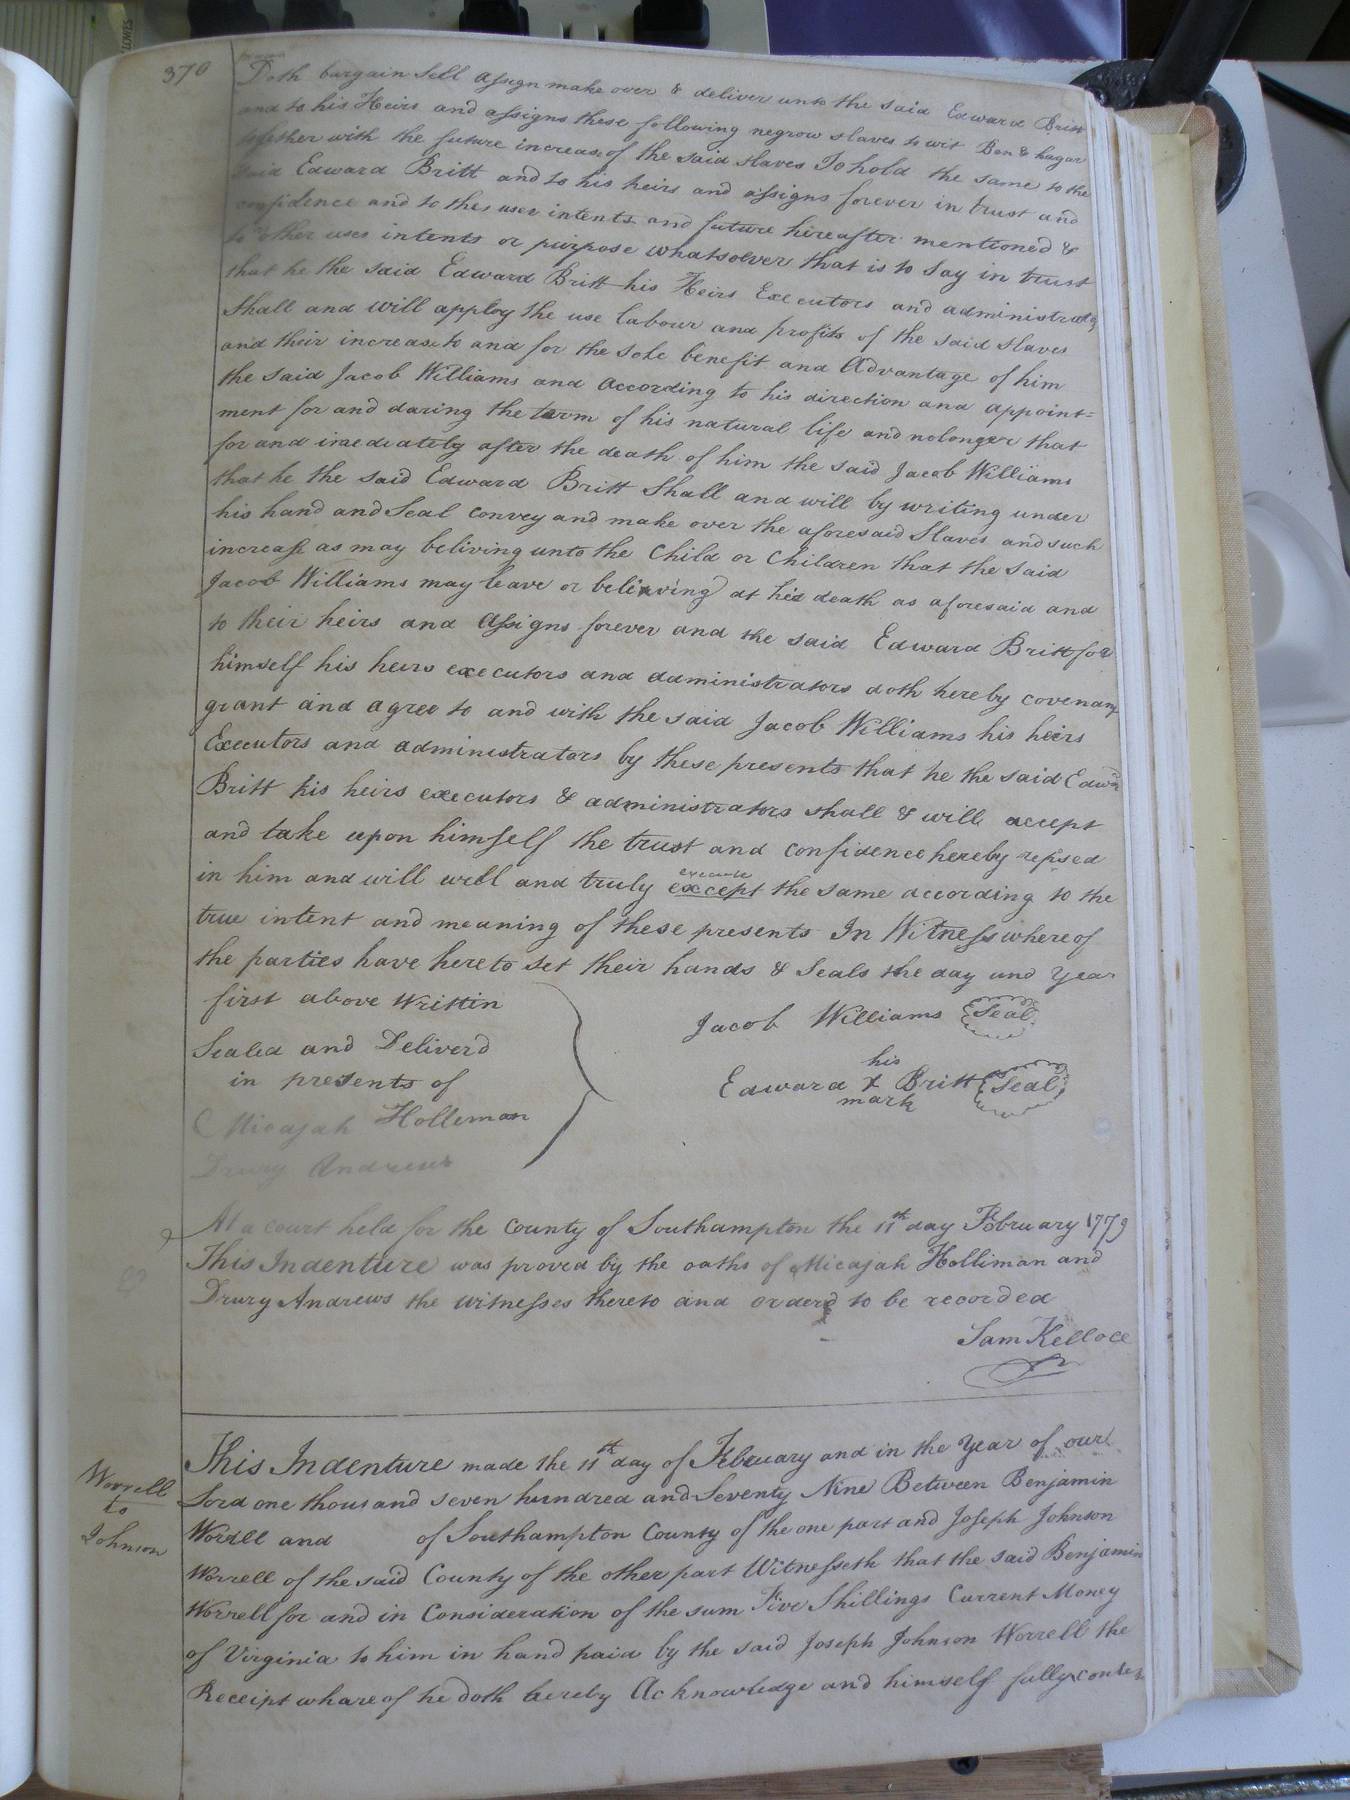 370
Doth bargain Sell assign make over & deliver unto the said Edward Britt
and to his Heirs and assigns these following negrow slaves to wit Ben & hagar
together with the future increase of the said slaves To hold the same to the
said Edward Britt and to his heirs and assigns forever in trust and
confidence and to the uses intents and future hereafter mentioned &
to other uses intents or purpose whatsoever that is to say in trust
that he the said Edward Britt his Heirs Executors and administrators
Shall and will apploy the use labour and profits of the said slaves
and their increase to and for the sole benefit and Advantage of him
the said Jacob Williams and according to his direction and appoint=
ment for and daring the term of his natural life and nolonger that
for and imediately after the death of him the said Jacob Williams
that he the said Edward Britt Shall and will by writing under
his hand and Seal convey and make over the aforesaid Slaves and such
increase as may beliving unto the Child or Children that the said
Jacob Williams may leave or beliving at his death as aforesaid and
to their heirs and assigns forever and the said Edward Britt for
himself his heirs executors and administrators doth hereby covenant
grant and agree to and with the said Jacob Williams his heirs
Executors and administrators by these presents that he the said Edwd
Britt his heirs executors & administrators shall & will accept
and take upon himself the trust and confidence hereby repsed
execute
in him and will well and truly except the same according to the
true intent and meaning of these presents In Witness whereof
the parties have hereto set their hands & Seals the day and year
first above Writtin
Jacob Williams Seal
Sealed and Deliver'd
in presents of
his
Edward X Britt Seal
mark
Micajah Holleman
Drury Andrews
At a court held for the County of Southampton the 11th day February 1779
This Indenture was proved by the oaths of Micajah Holliman and
Drury Andrews the witnesses thereto and orderd to be recorded
Sam Kelloce
Worrell
to
Johnson
This Indenture made the 11th day of February and in the Year of our
Lord one thousand seven hundred and Seventy Nine Between Benjamin
Worrell and of Southampton County of the one part and Joseph Johnson
Worrell of the said County of the other part Witnesseth that the said Benjamin
Worrell for and in Consideration of the sum Five Shillings Current Money
of Virginia to him in hand paid by the said Joseph Johnson Worrell the
Receipt whareof he doth hereby Acknowledge and himself fully